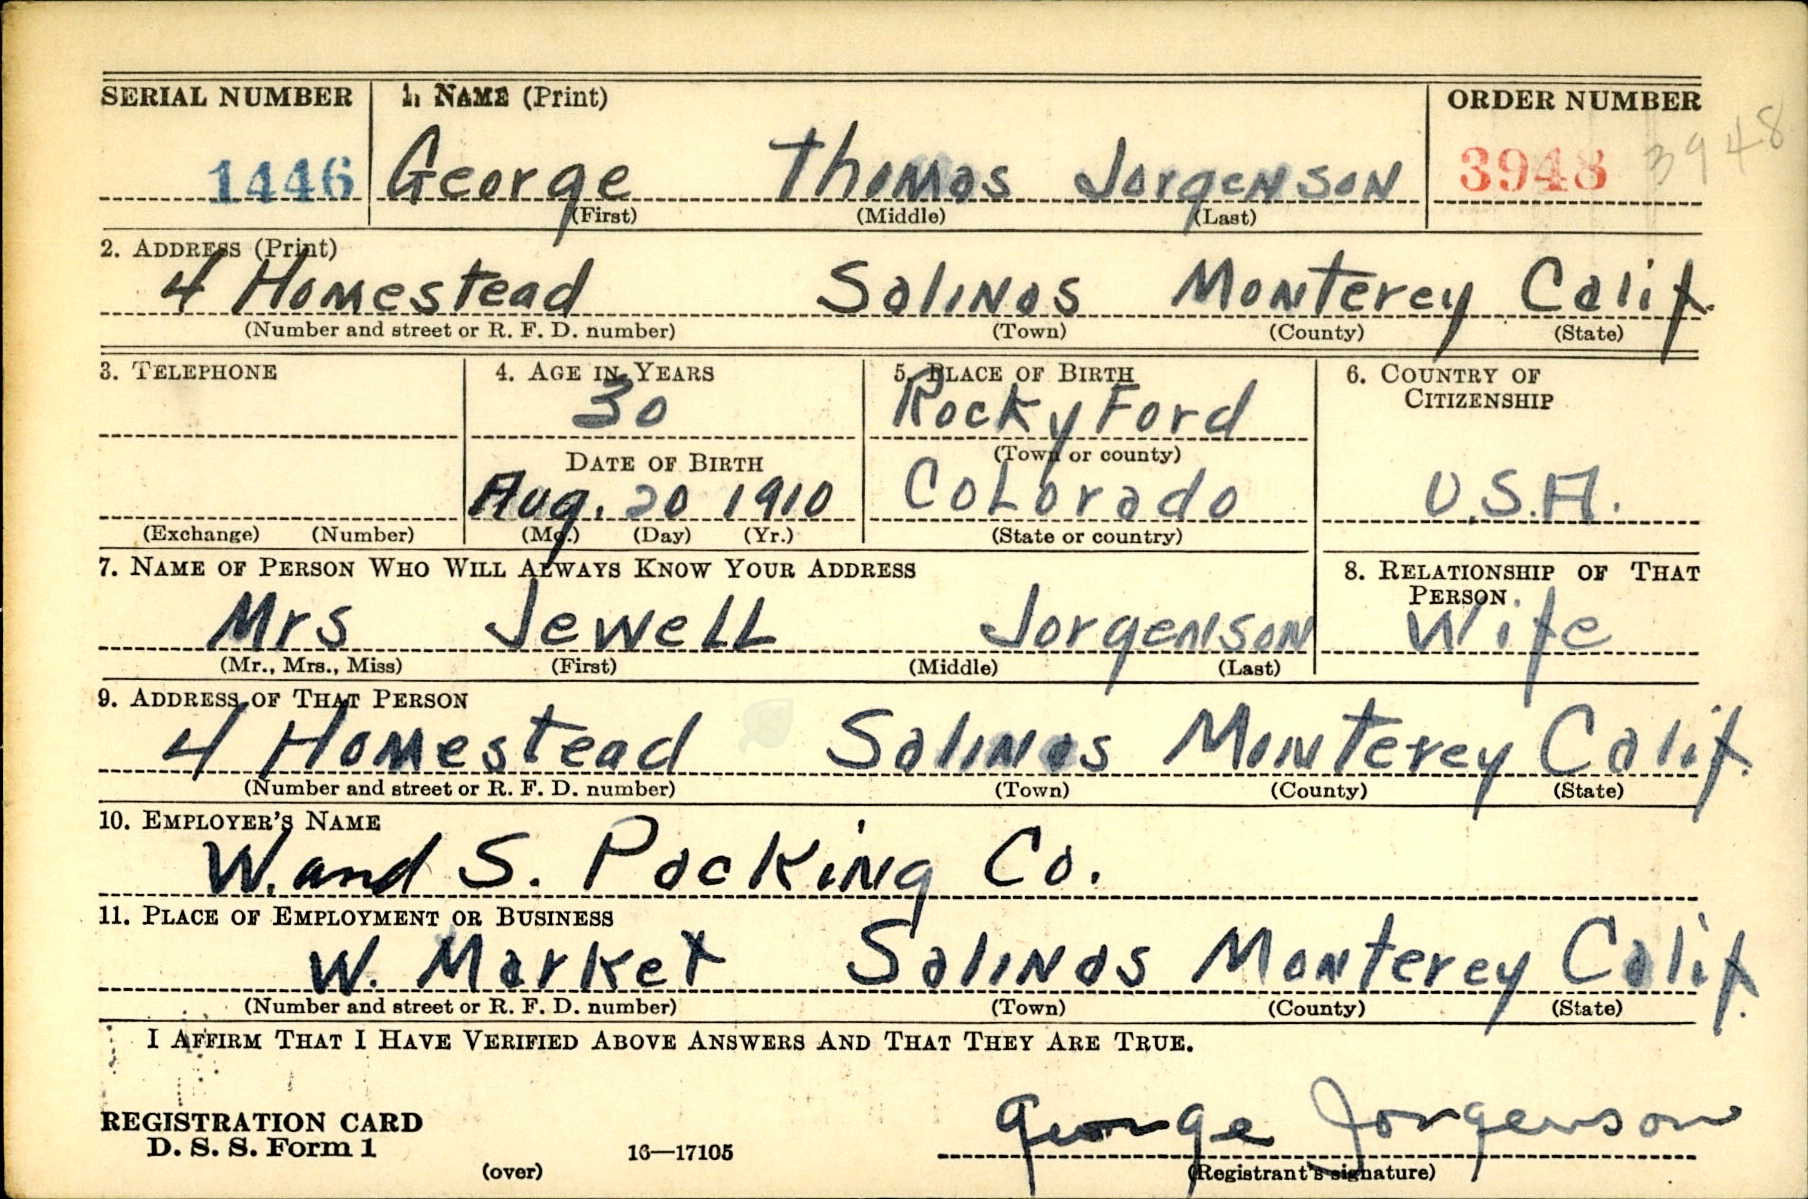 SERIAL NUMBER 1. NAME (Print) ORDER NUMBER
1446 George Thomas Jorgenson 3948 3948
(First) (Middle) (Last)
2. ADDRESS (Print)
4 Homestead Salinas Monterey Calif.
(Number and street or R. F. D. number) (Town) (County) (State)
3. TELEPHONE 4. AGE IN YEARS 5. PLACE OF BIRTH 6. COUNTRY OF CITIZENSHIP
30 Rocky Ford
DATE OF BIRTH (Town or county)
Aug. 20 1910 Colorado U.S.A.
(Exchange) (Number) (Mo.) (Day) (Yr.) (State or country)
7. NAME OF PERSON WHO WILL ALWAYS KNOW YOUR ADDRESS 8. RELATIONSHIP OF THAT PERSON
Mrs Jewell Jorgenson Wife
(Mr., Mrs., Miss) (First) (Middle) (Last)
9. ADDRESS OF THAT PERSON
4 Homestead Salinas Monterey Calif.
(Number and street or R. F. D. number) (Town) (County) (State)
10. EMPLOYER'S NAME
W. and S. Packing Co.
11. PLACE OF EMPLOYMENT OR BUSINESS
W. Market Salinas Monterey Calif.
(Number and street or R. F. D. number) (Town) (County) (State)
I AFFIRM THAT I HAVE VERIFIED ABOVE ANSWERS AND THAT THEY ARE TRUE.
George Jorgenson
REGISTRATION CARD
D. S. S. Form 1 16—17105
(over) (Registrant's signature)